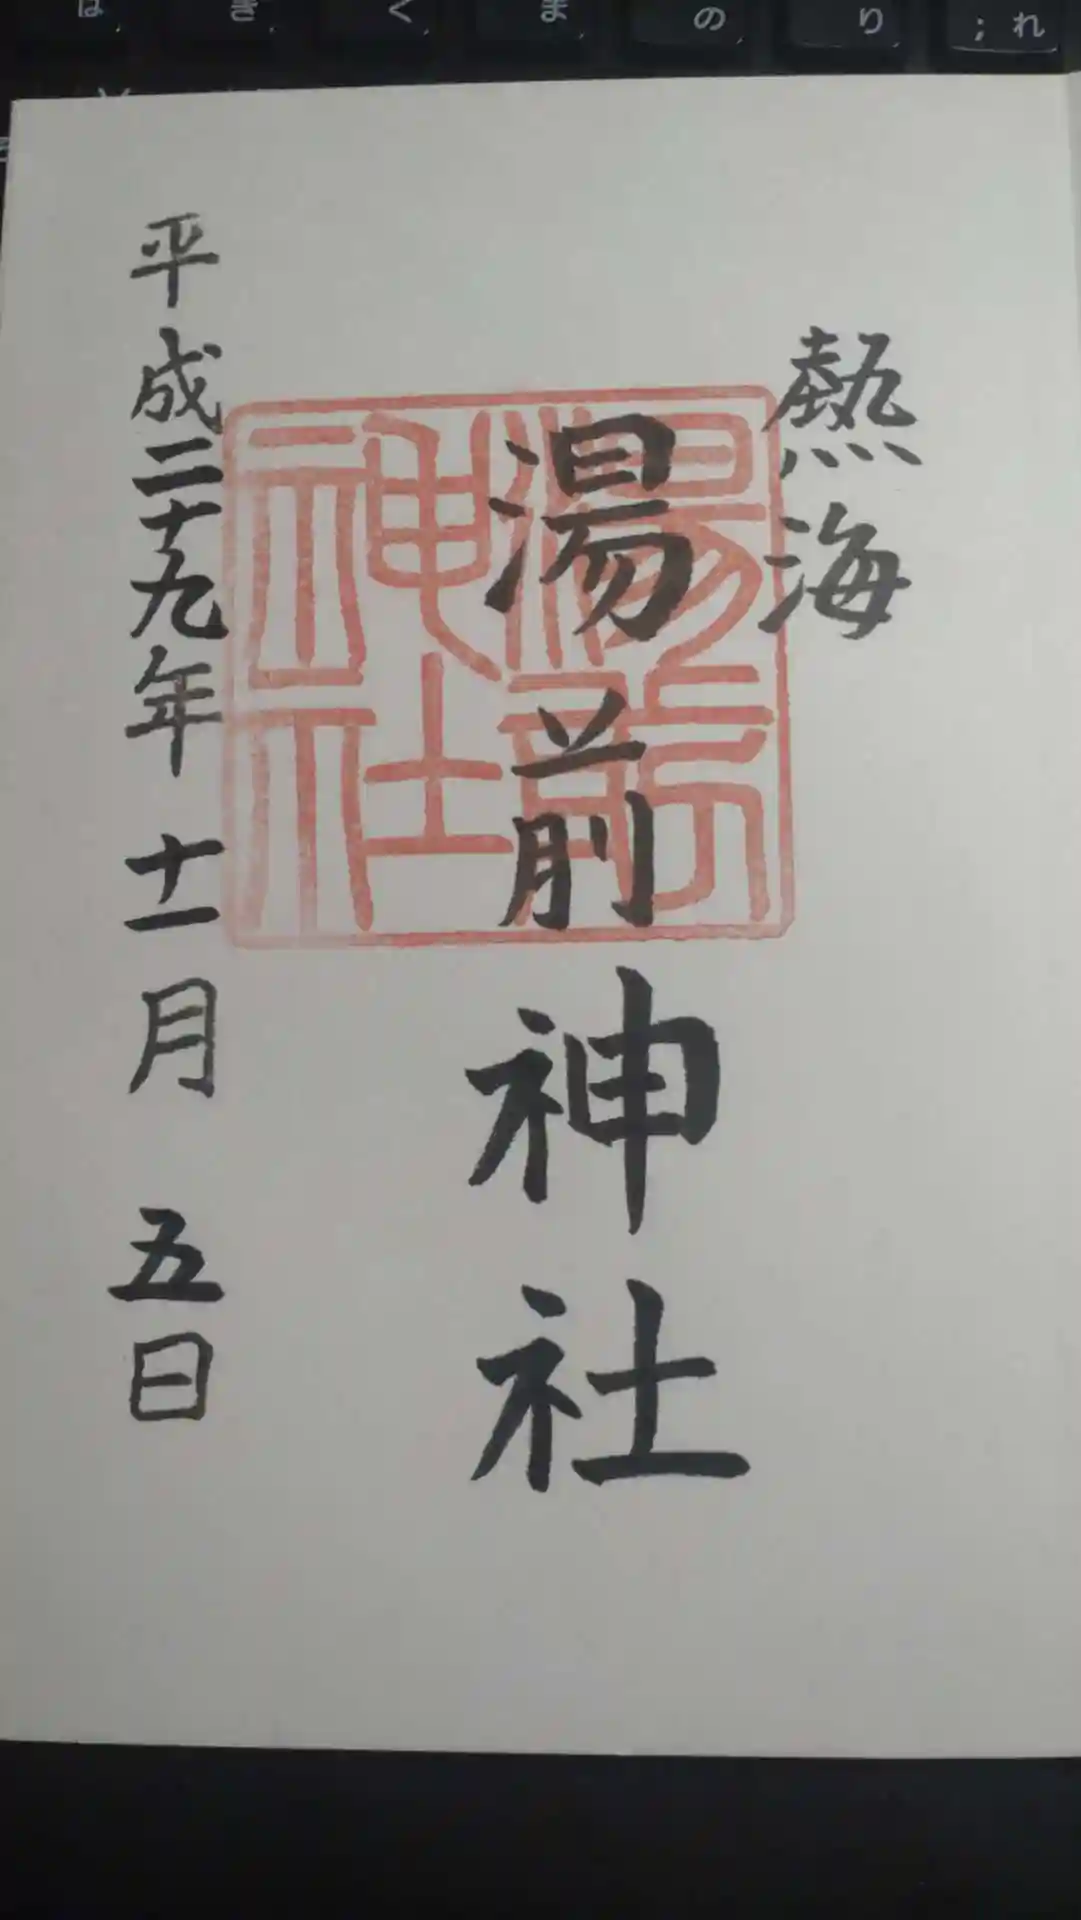 はきくまのり;れ
熱海
湯前神社
湯前神社
平成二十九年十一月五日